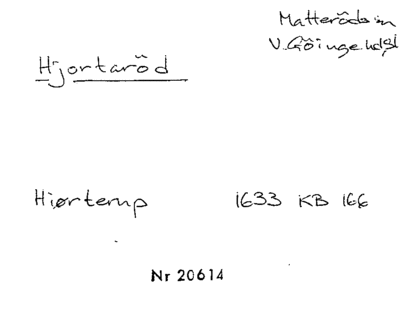 Matteröds sn
V. Göinge hd sl
Hjortaröd
Hiørterup 1633 KB 166
Nr 20614